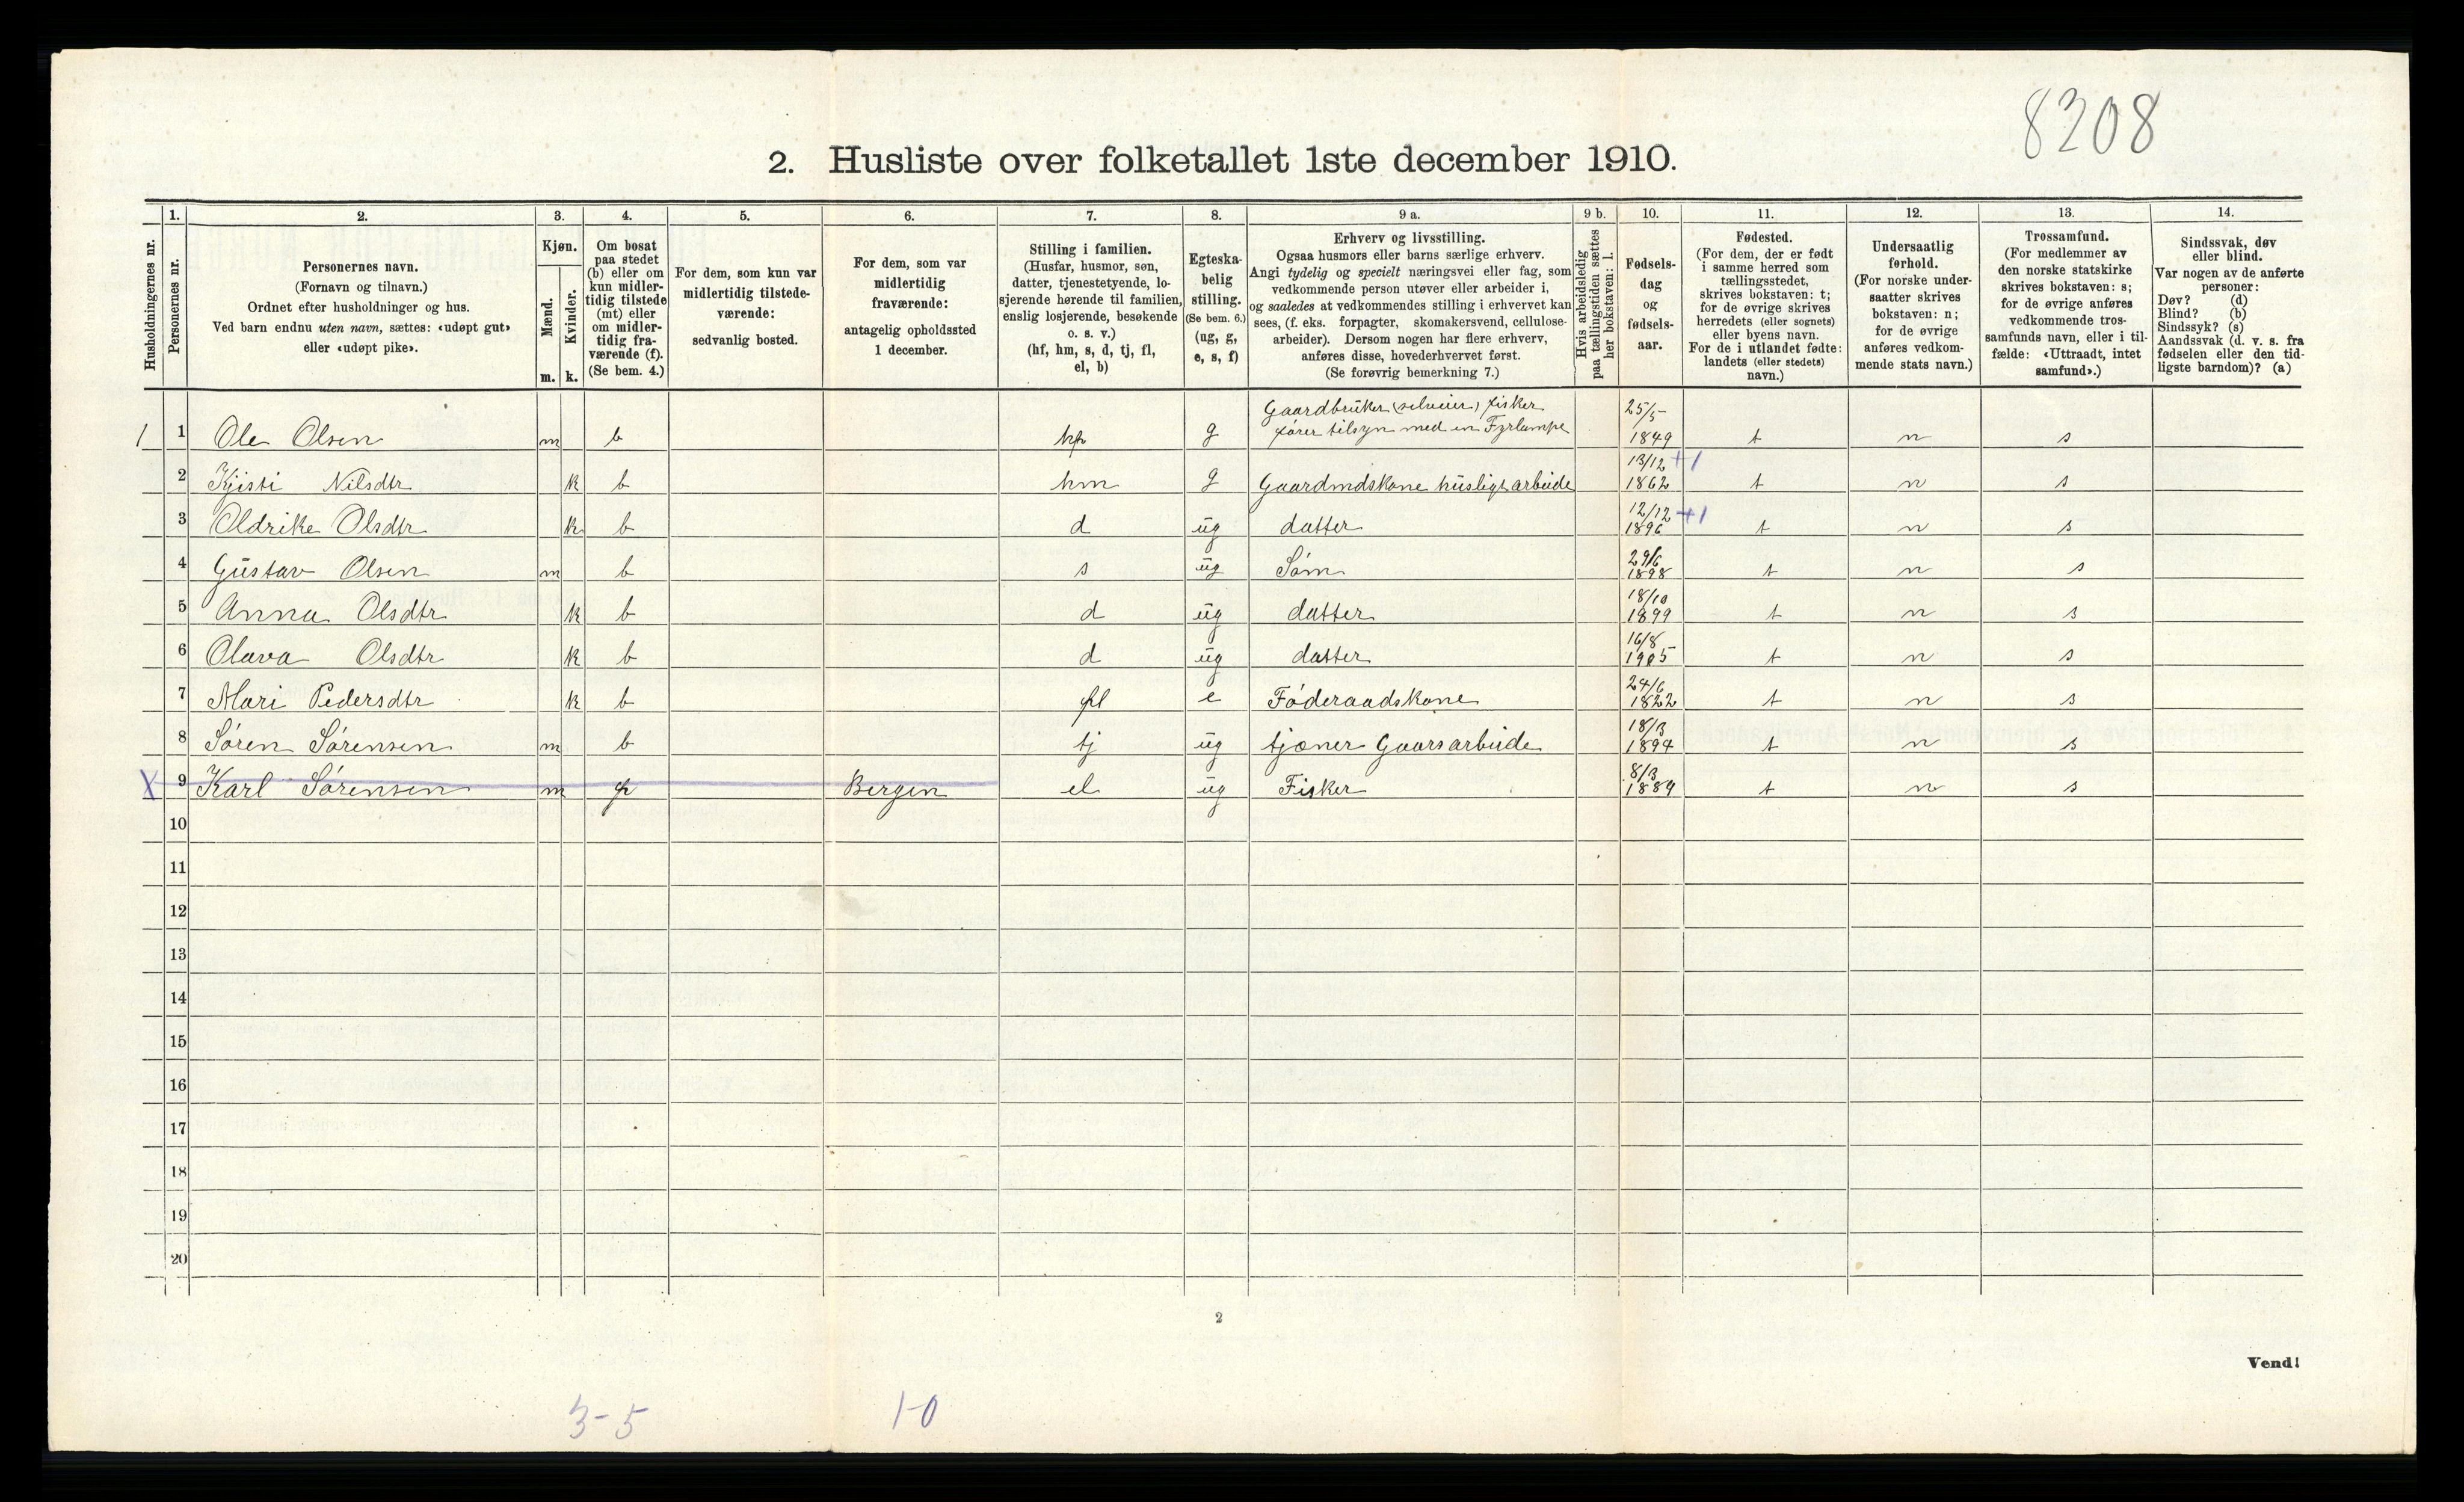 8208
2. Husliste over folketallet 1ste december 1910.
Husholdningernes nr.
1.
Personernes nr.
2.
Personernes navn.
(Fornavn og tilnavn.)
Ordnet efter husholdninger og hus.
Ved barn endnu uten navn, sættes: «udøpt gut»
eller «udøpt pike».
3.
Kjøn.
Mænd.
m.
Kvinder.
k.
4.
Om bosat
paa stedet
(b) eller om
kun midler-
tidig tilstede
(mt) eller
om midler-
tidig fra-
værende (f).
(Se bem. 4.)
5.
For dem, som kun var
midlertidig tilstede-
værende:
sedvanlig bosted.
6.
For dem, som var
midlertidig
fraværende:
antagelig opholdssted
1 december.
7.
Stilling i familien.
(Husfar, husmor, søn,
datter, tjenestetyende, lo-
sjerende hørende til familien,
enslig losjerende, besøkende
o. s. v.)
(hf, hm, s, d, tj, fl,
el, b)
8.
Egteska-
belig
stilling.
(Se bem. 6.)
(ug, g,
e, s, f)
9 a.
Erhverv og livsstilling.
Ogsaa husmors eller barns særlige erhverv.
Angi tydelig og specielt næringsvei eller fag, som
vedkommende person utøver eller arbeider i,
og saaledes at vedkommendes stilling i erhvervet kan
sees, (f. eks. forpagter, skomakersvend, cellulose-
arbeider). Dersom nogen har flere erhverv,
anføres disse, hovederhvervet først.
(Se forøvrig bemerkning 7.)
9 b.
Hvis arbeidsledig
paa tællingstiden sættes
her bokstaven: l.
10.
Fødsels-
dag
og
fødsels-
aar.
11.
Fødested.
(For dem, der er født
i samme herred som
tællingsstedet,
skrives bokstaven: t;
for de øvrige skrives
herredets (eller sognets)
eller byens navn.
For de i utlandet fødte:
landets (eller stedets)
navn.)
12.
Undersaatlig
forhold.
(For norske under-
saatter skrives
bokstaven: n;
for de øvrige
anføres vedkom-
mende stats navn.)
13.
Trossamfund.
(For medlemmer av
den norske statskirke
skrives bokstaven: s;
for de øvrige anføres
vedkommende tros-
samfunds navn, eller i til-
fælde: «Uttraadt, intet
samfund».)
14.
Sindssvak, døv
eller blind.
Var nogen av de anførte
personer:
Døv? (d)
Blind? (b)
Sindssyk? (s)
Aandssvak (d. v. s. fra
fødselen eller den tid-
ligste barndom)? (a)
Gaardbruker (selveier) fisker 25/5
1 1 Ole Olsen m b hf g fører tilsyn med en Fyrlampe 1849 t n s
13/12 +1
2 Kjisti Nilsdtr k b hm g Gaardmdskone husligt arbeide 1862 t n s
12/12 +1
3 Oldrike Olsdtr k b d ug datter 1896 t n s
29/6
4 Gustav Olsen m b s ug Søn 1898 t n s
18/10
5 Anna Olsdtr k b d ug datter 1899 t n s
16/8
6 Olava Olsdtr k b d ug datter 1905 t n s
24/6
7 Mari Pedersdtr k b fl e Føderaadskone 1822 t n s
18/3
8 Søren Sørensen m b tj ug tjener Gaarsarbeide 1894 t n s
8/3
X 9 Karl Sørensen m f Bergen el ug Fisker 1889 t n s
10
11
12
13
14
15
16
17
18
19
20
2
Vend!
3-5 1-0